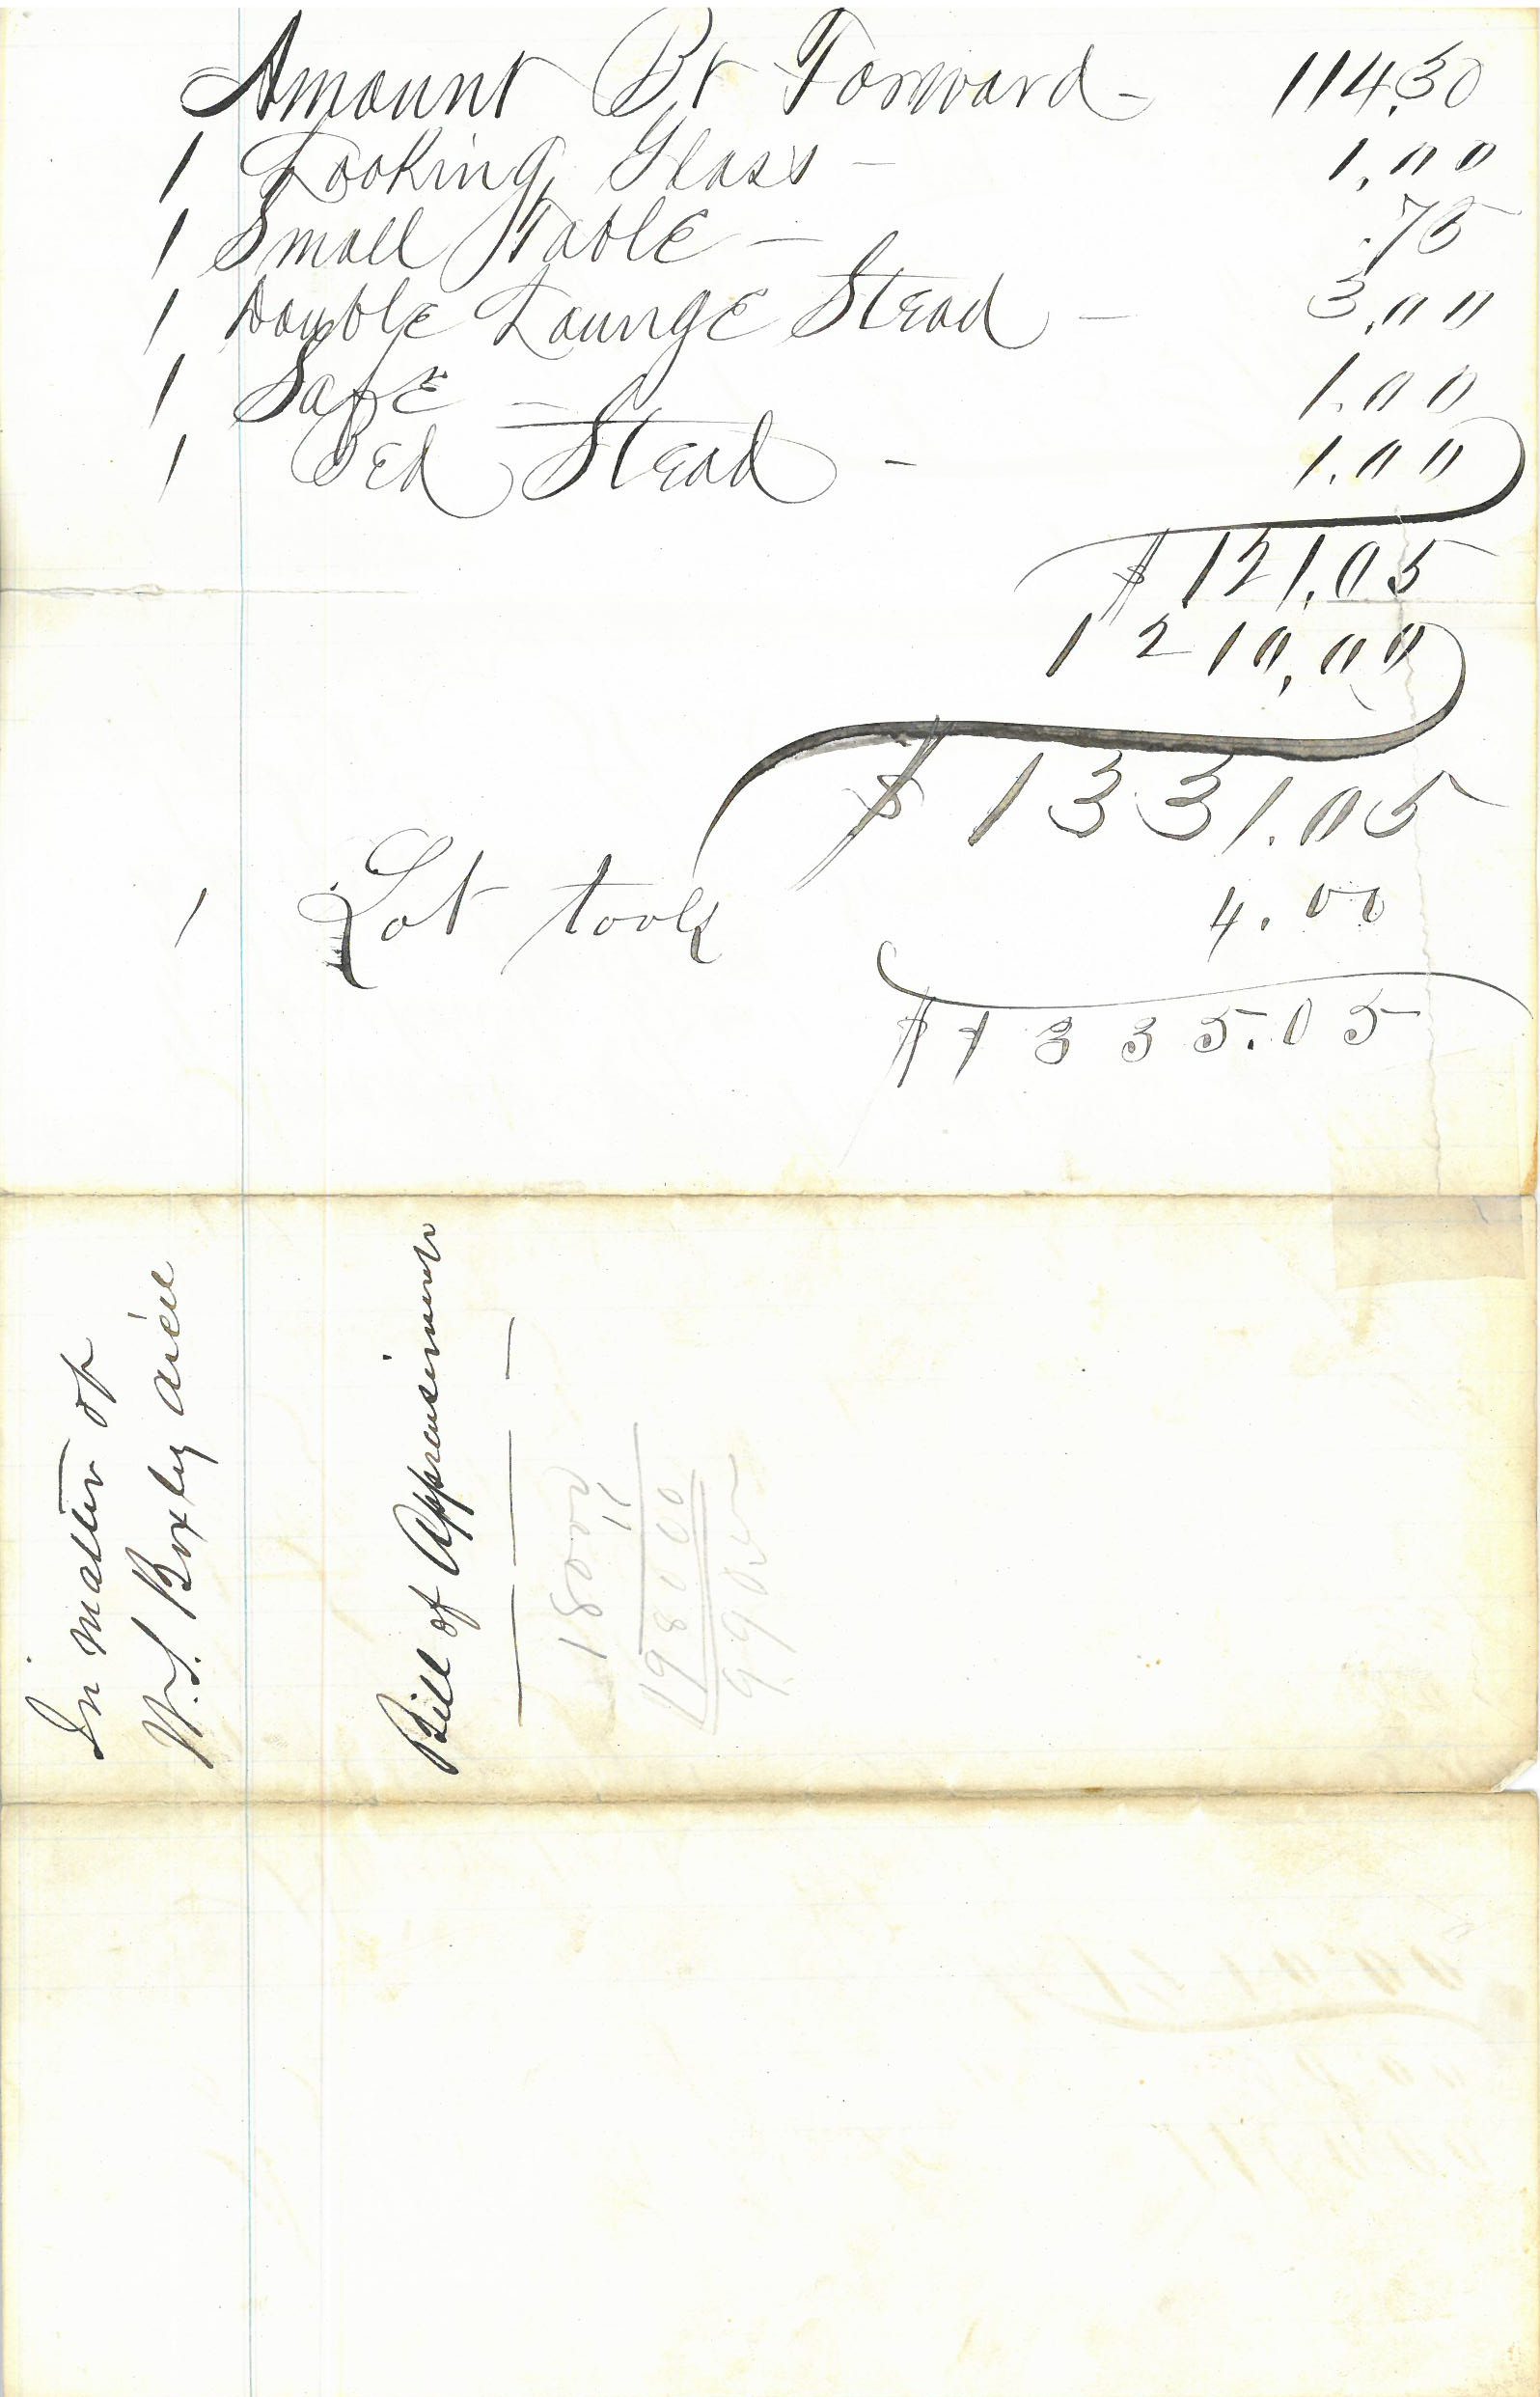 Amount Bt Forward - 114.30
1 Looking Glass - 1.00
1 Small Table - .75
1 Double Lounge Stead - 3.00
1 Safe - 1.00
1 Bed Stead - 1.00
$ 121.05
1210.00
$ 1331.05
1 Lot tools 4.00
$ 1335.05
In matter of
W.S. Boxley
Bill of Appraisement
1800
11
198000
9.90